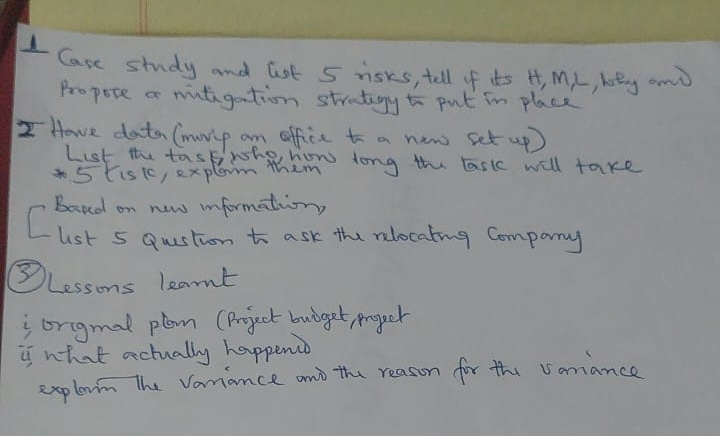 1 Case study and list 5 risks, tell if its H, M, L, why and
Propose a mitigation strategy to put in place
2 Have data (movip an office to a new set up)
List the task, who, how long the task will take
* 5 risk, explain them
Based on new information,
list 5 Question to ask the relocating Company
3 Lessons learnt
i, original plan (Project budget, project
ii what actually happened
explain the variance and the reason for the variance